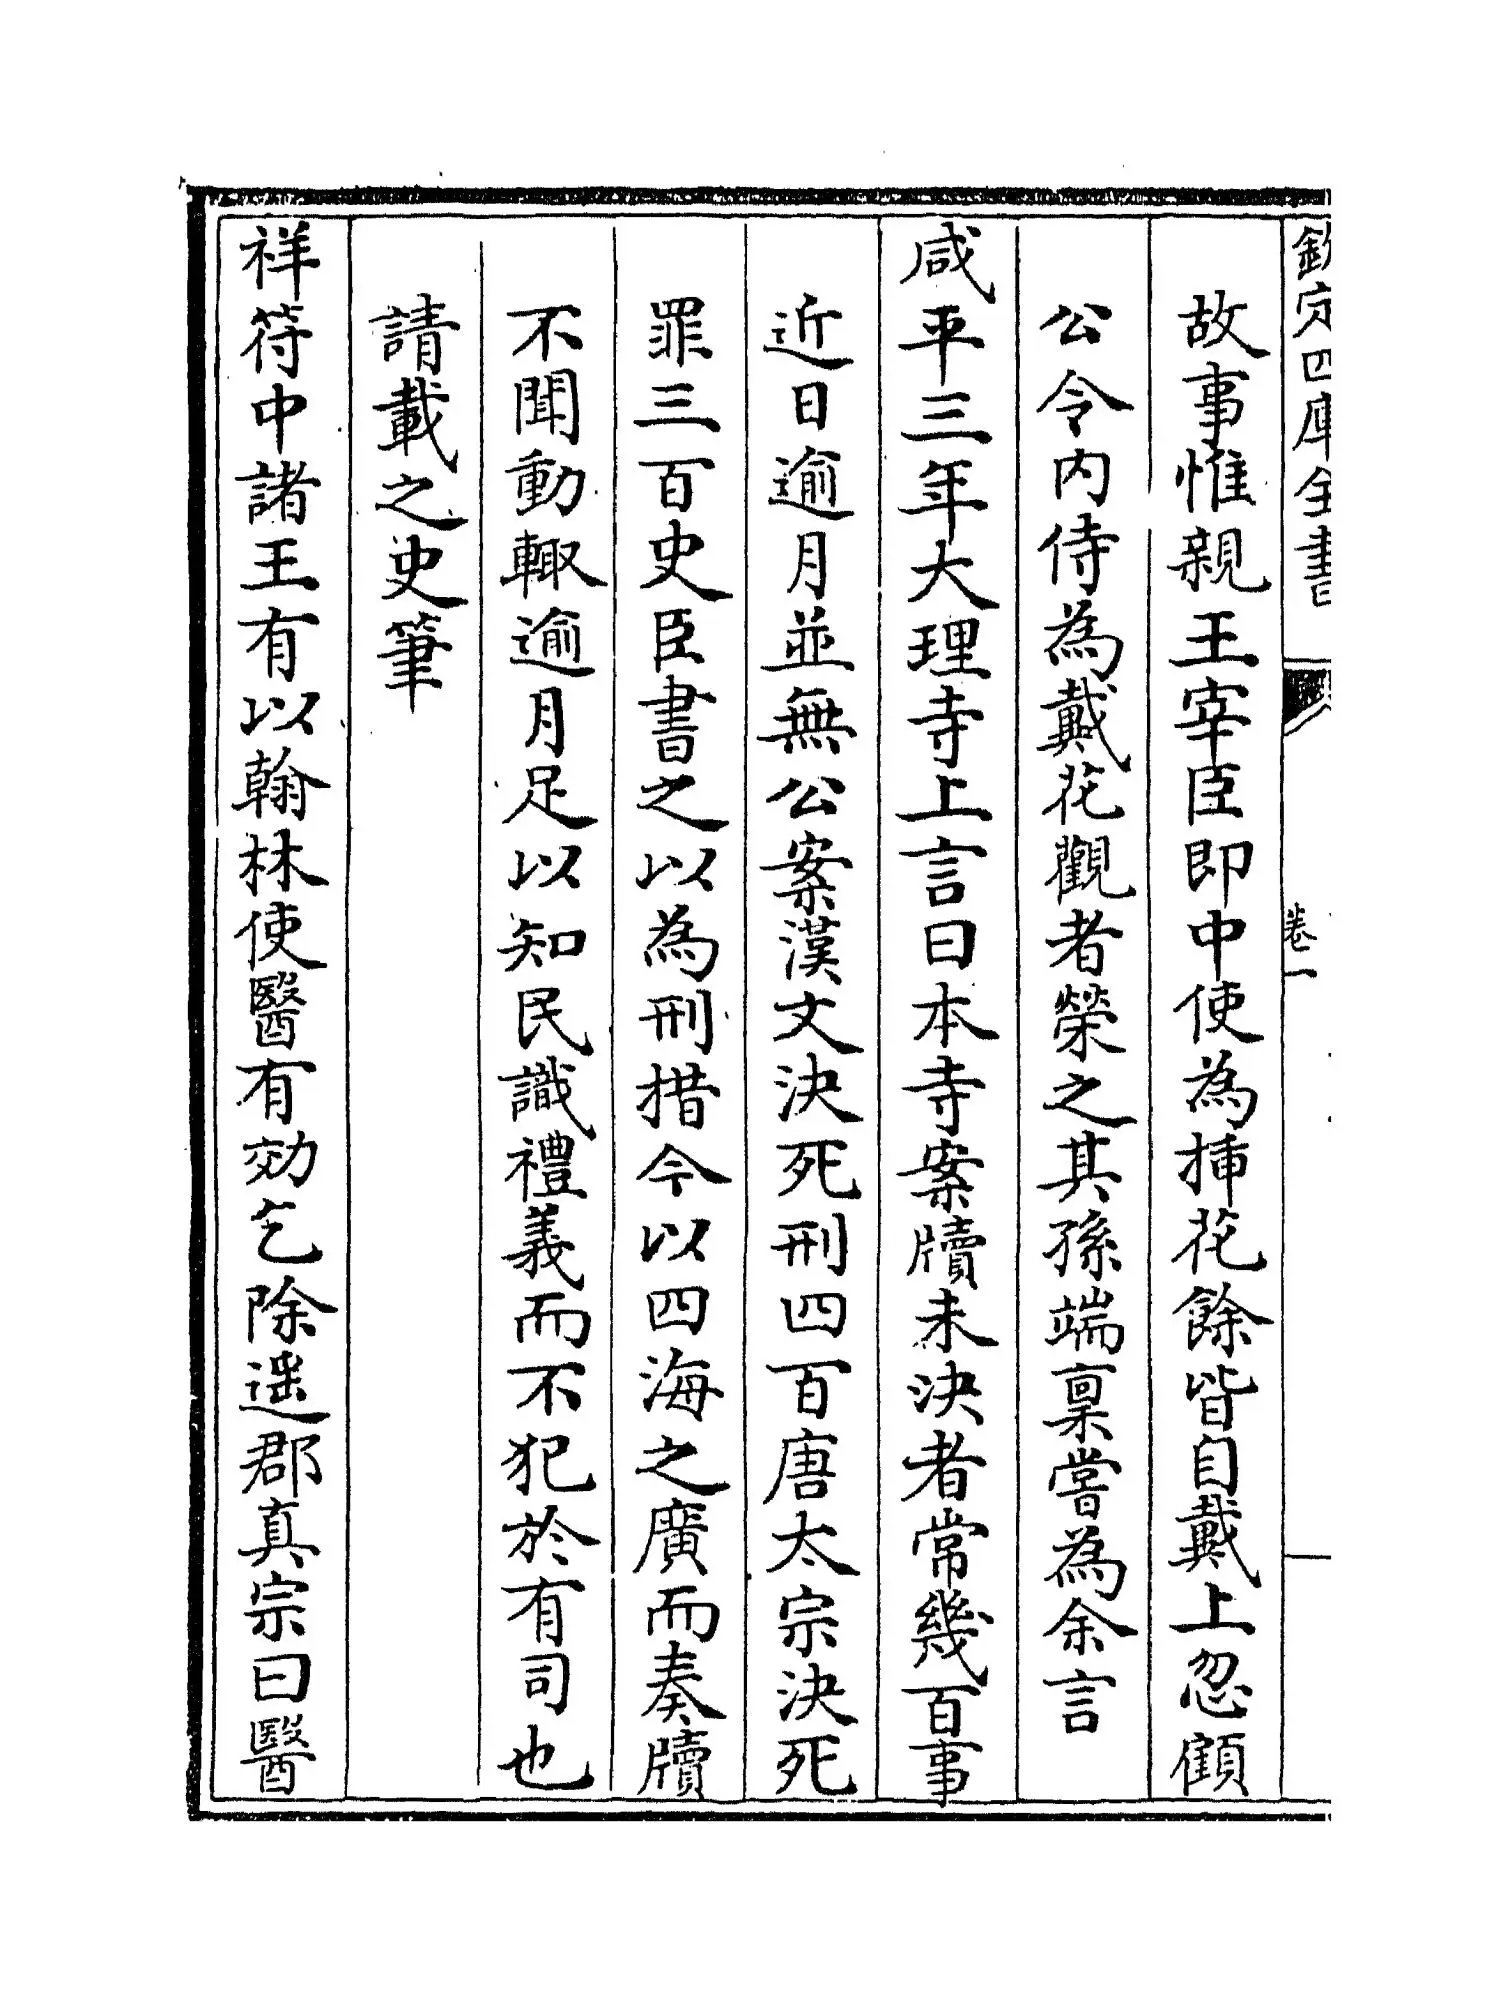 欽定四庫全書
卷一
故事惟親王宰臣即中使為挿花餘皆自戴上忽顧
公令内侍為戴花觀者榮之其孫端稟嘗為余言
咸平三年大理寺上言曰本寺案牘未決者常幾百事
近日逾月並無公案漢文決死刑四百唐太宗決死
罪三百史臣書之以為刑措今以四海之廣而奏牘
不聞動輙逾月足以知民識禮義而不犯於有司也
請載之史筆
祥符中諸王有以翰林使醫有効乞除遥郡真宗曰醫